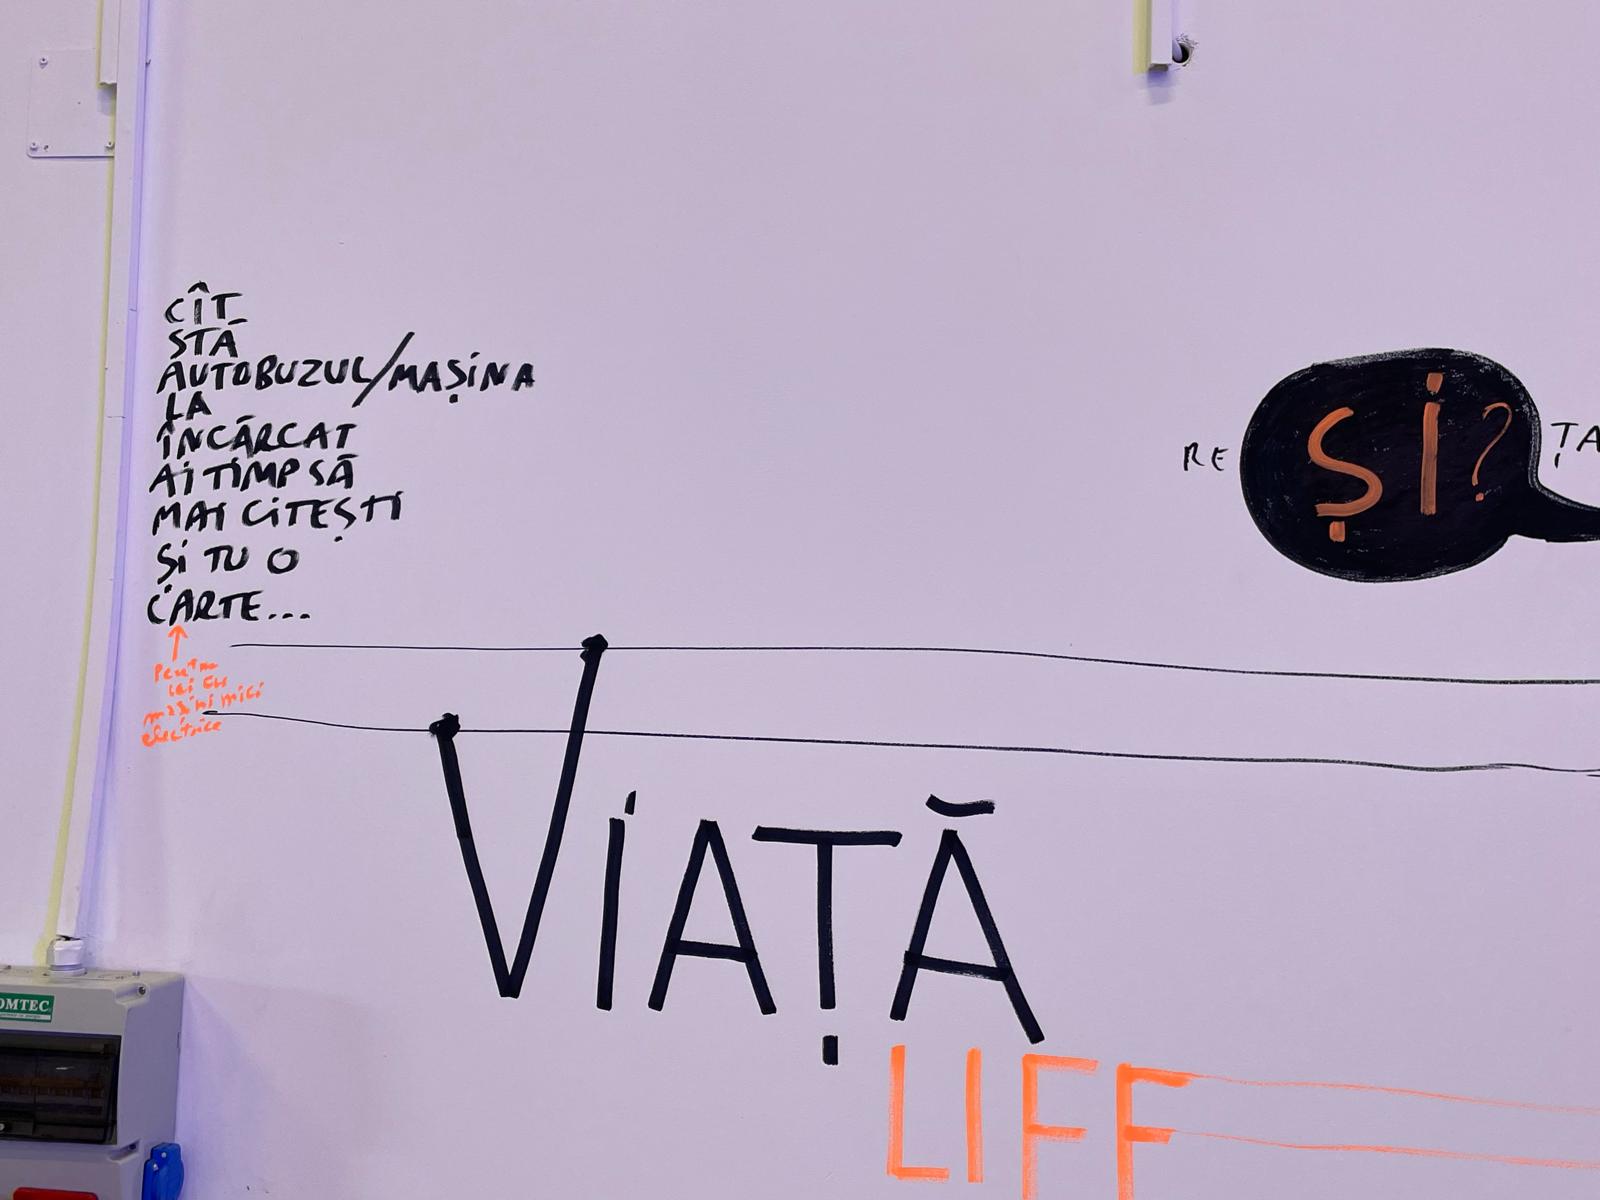 CÎT
STĂ
AUTOBUZUL/MAȘINA
LA
ÎNCĂRCAT
AI TIMP SĂ
MAI CITEȘTI
ȘI TU O
CARTE...
Pentru
cei cu
mașini mici
electrice
RE
ȘI?
ȚA
VIAȚĂ
LIFE
OMTEC